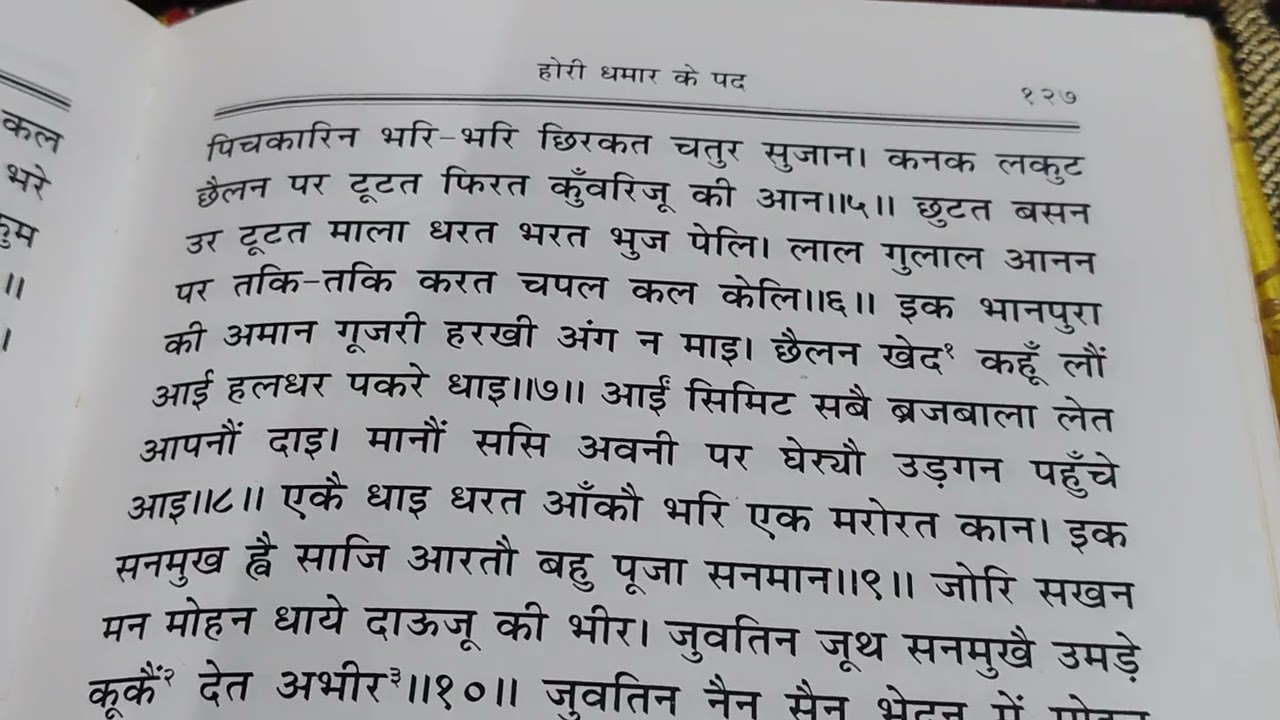 कल
भरे
॥
।
होरी धमार के पद
१२७
पिचकारिन भरि-भरि छिरकत चतुर सुजान। कनक लकुट
छैलन पर टूटत फिरत कुँवरिजू की आन॥५॥ छुटत बसन
उर टूटत माला धरत भरत भुज पेलि। लाल गुलाल आनन
पर तकि-तकि करत चपल कल केलि॥६॥ इक भानपुरा
की अमान गूजरी हरखी अंग न माइ। छैलन खेद१ कहूँ लौं
आई हलधर पकरे धाइ॥७॥ आईं सिमिट सबै ब्रजबाला लेत
आपनौं दाइ। मानौं ससि अवनी पर घेर्‌यौ उड़गन पहुँचे
आइ॥८॥ एकै धाइ धरत आँकौ भरि एक मरोरत कान। इक
सनमुख ह्वै साजि आरतौ बहु पूजा सनमान॥९॥ जोरि सखन
मन मोहन धाये दाऊजू की भीर। जुवतिन जूथ सनमुखै उमड़े
कूकैं२ देत अभीर३॥१०॥ जुवतिन नैन सैन भेदन में